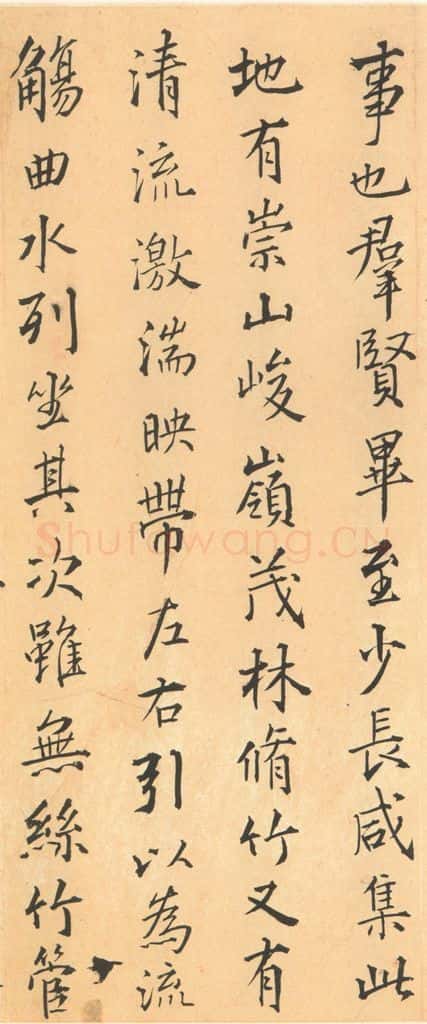 事也羣賢畢至少長咸集此
地有崇山峻嶺茂林脩竹又有
清流激湍映帶左右引以為流
觴曲水列坐其次雖無絲竹管
Shufawang.CN